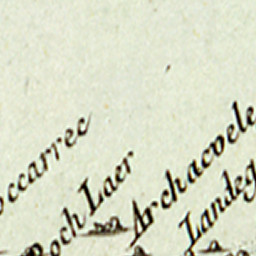 occarrec
och Laer
Archacoele
Landeg